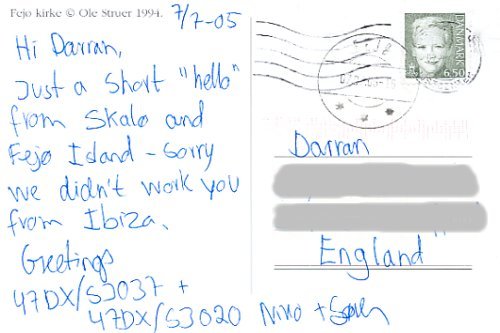 Fejø kirke © Ole Struer 1994.
7/7-05
Hi Darran,
Just a short "hello"
from Skalø and
Fejø Island - Sorry
we didn't work you
from Ibiza.
Greetings
47DX/S3037 +
47DX/S3020 Niko + Søren
DANMARK
6.50
Darran
England